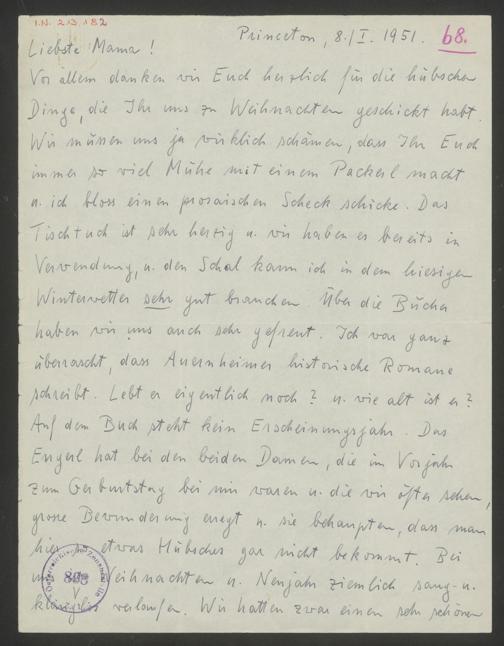 I.N. 213.182
Princeton, 8./I. 1951. 68.
Liebste Mama!
Vor allem danken wir Euch herzlich für die hübschen
Dinge, die Ihr uns zu Weihnachten geschickt habt.
Wir müssen uns ja wirklich schämen, dass Ihr Euch
immer so viel Mühe mit einem Packerl macht
u. ich bloss einen prosaischen Scheck schicke. Das
Tischtuch ist sehr herzig u. wir haben es bereits in
Verwendung, u. den Schal kann ich in dem hiesigen
Winterwetter sehr gut brauchen. Über die Bücher
haben wir uns auch sehr gefreut. Ich war ganz
überrascht, dass Auernheimer historische Romane
schreibt. Lebt er eigentlich noch? u. wie alt ist er?
Auf dem Buch steht kein Erscheinungsjahr. Das
Engerl hat bei den beiden Damen, die im Vorjahr
zum Geburtstag bei mir waren u. die wir öfter sehen,
grosse Bewunderung erregt u. sie behaupten, dass man
hier etwas Hübsches gar nicht bekommt. Bei
Weihnachten u. Neujahr ziemlich sang- u.
klanglos verlaufen. Wir hatten zwar einen sehr schönen